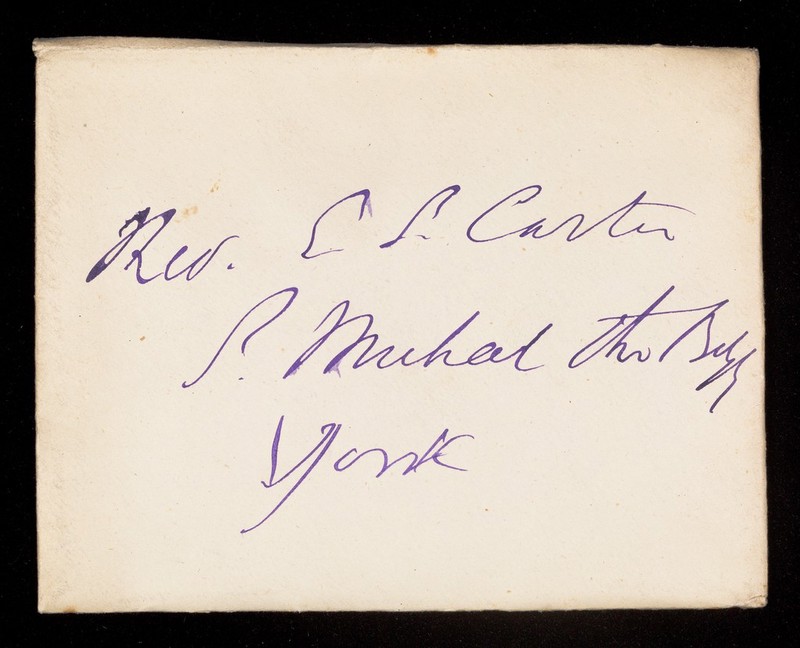 Rev. E S. Carter
S. Michael the Belfy
York